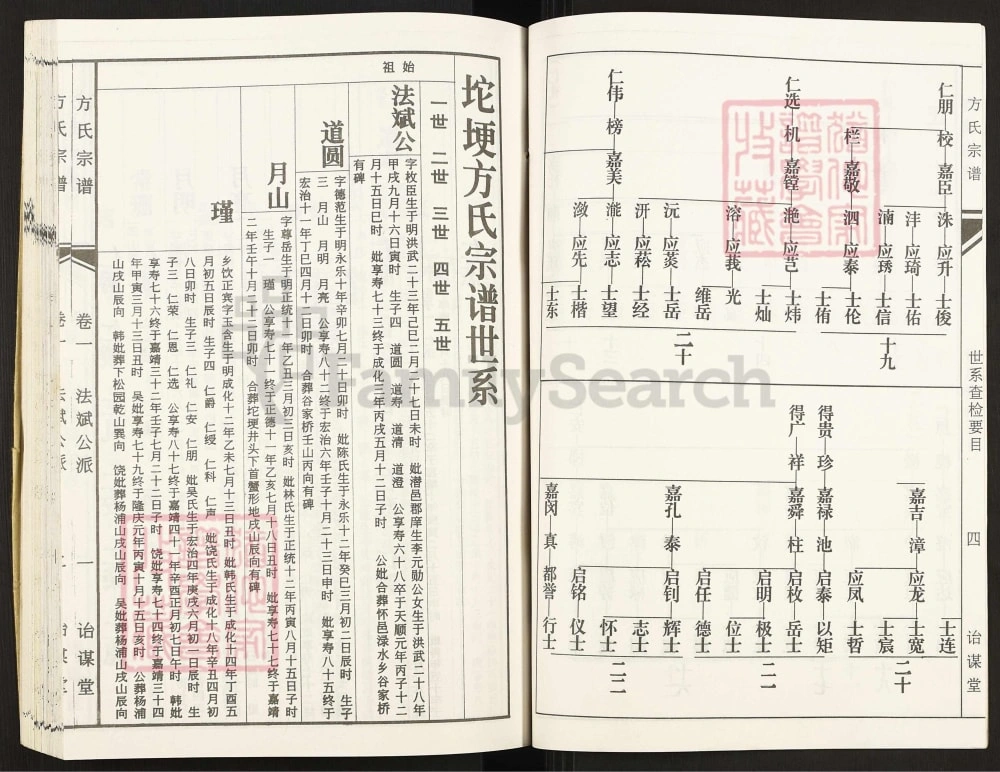 方氏宗谱
世系查检要目
四
诒谋堂
仁朋 校 嘉臣 洙 应升 士俊
沣 应琦 士佑
湳 应琇 士信
十九
栏 嘉敬 泗 应泰 士伦
士侑
仁选 机 嘉镗 滟 应芑 士炜
士灿
溶 应莪 光
维岳
二十
仁伟 榜 嘉美 沅 应荚 士岳
汧 应菘 士经
应志 士望
应先 士楷
士东
士连
嘉吉 漳 应龙 士宽
士宸
二十
应凤 士哲
得贵 珍 嘉禄 池 启泰 以矩
得广 祥 嘉舜 柱 启枚 岳士
启明 极士
二一
位士
启任 德士
嘉孔 泰 启钊 辉士
志士
怀士
二二
启铭 仪士
嘉闵 真 都誉 行士
坨埂方氏宗谱世系
始祖
一世 二世 三世 四世 五世
法斌公
字枚臣生于明洪武二十三年己巳二月二十七日未时 妣潜邑郡庠生李元勋公女生于洪武二十八年
甲戌九月十六日寅时 生子四 道圆 道寿 道清 道澄 公享寿六十八卒于天顺元年丙子十二
月十五日巳时 妣享寿七十三终于成化三年丙戌五月十二日子时 公妣合葬怀邑渌水乡谷家桥
有碑
道圆
字德范生于明永乐十年辛卯七月二十日卯时 妣陈氏生于永乐十二年癸巳三月初二日辰时 生子
三 月山 月明 月亮 公享寿八十二终于宏治六年壬子十月二十三日申时 妣享寿八十五终于
宏治十一年丁巳四月十一日卯时 合葬谷家桥壬山丙向有碑
月山
字尊岳生于明正统十年乙丑三月初三日亥时 妣林氏生于正统十二年丙寅八月十五日子时
生子一 瑾 公享寿七十一终于正德十一年乙亥七月十八日丑时 妣享寿七十七终于嘉靖
二年壬午十月二十二日卯时 合葬坨埂井头下首蟹形地戌山辰向有碑
瑾
乡饮正宾字玉含生于明成化十二年乙未七月十三日丑时 妣韩氏生于成化十四年丁酉五
月初五日辰时 生子四 仁爵 仁绶 仁科 仁声 妣饶氏生于成化十八年辛丑四月初
八日卯时 生子三 仁礼 仁安 仁朋 妣吴氏生于宏治四年庚戌六月初一日辰时 生
子三 仁荣 仁恩 仁选 公享寿八十七终于嘉靖四十一年辛酉正月初七日午时 韩妣
享寿七十六终于嘉靖三十二年壬子七月二十二日子时 饶妣享寿七十四终于嘉靖三十四
年甲寅三月十三日丑时 吴妣享寿七十九终于隆庆元年丙寅十月十五日亥时 公葬杨浦
山戌山辰向 韩妣葬下松园乾山巽向 饶妣葬杨浦山戌山辰向 吴妣葬杨浦山戌山辰向
方氏宗谱
卷一
法斌公派
一
诒谋堂
FamilySearch